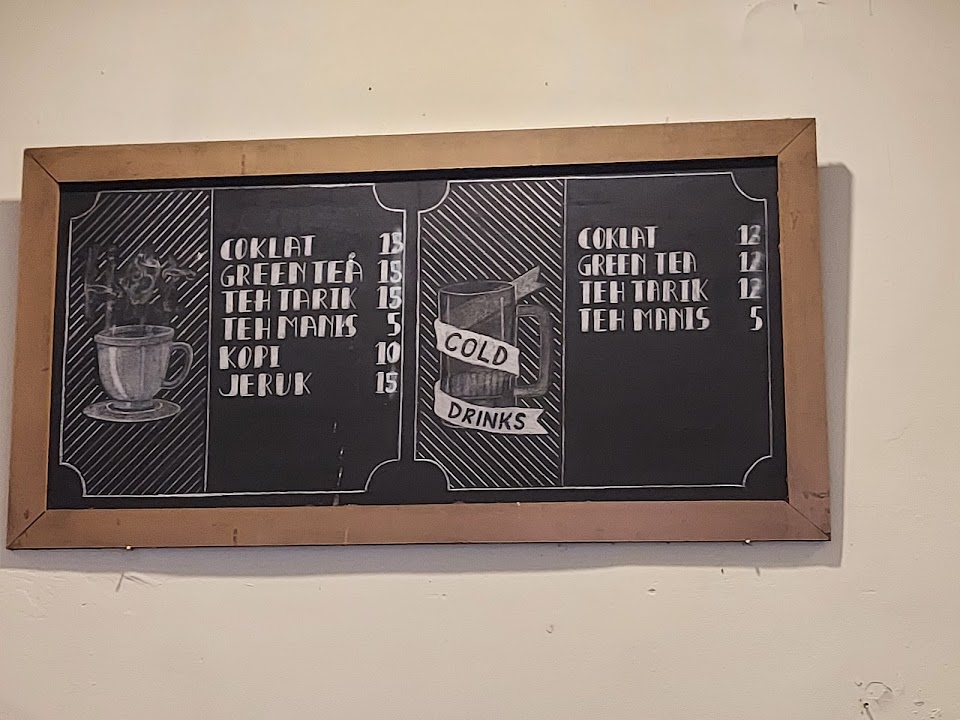 HOT
COKLAT 15
GREEN TEA 15
TEH TARIK 15
TEH MANIS 5
KOPI 10
JERUK 15
COLD
DRINKS
COKLAT 12
GREEN TEA 12
TEH TARIK 12
TEH MANIS 5